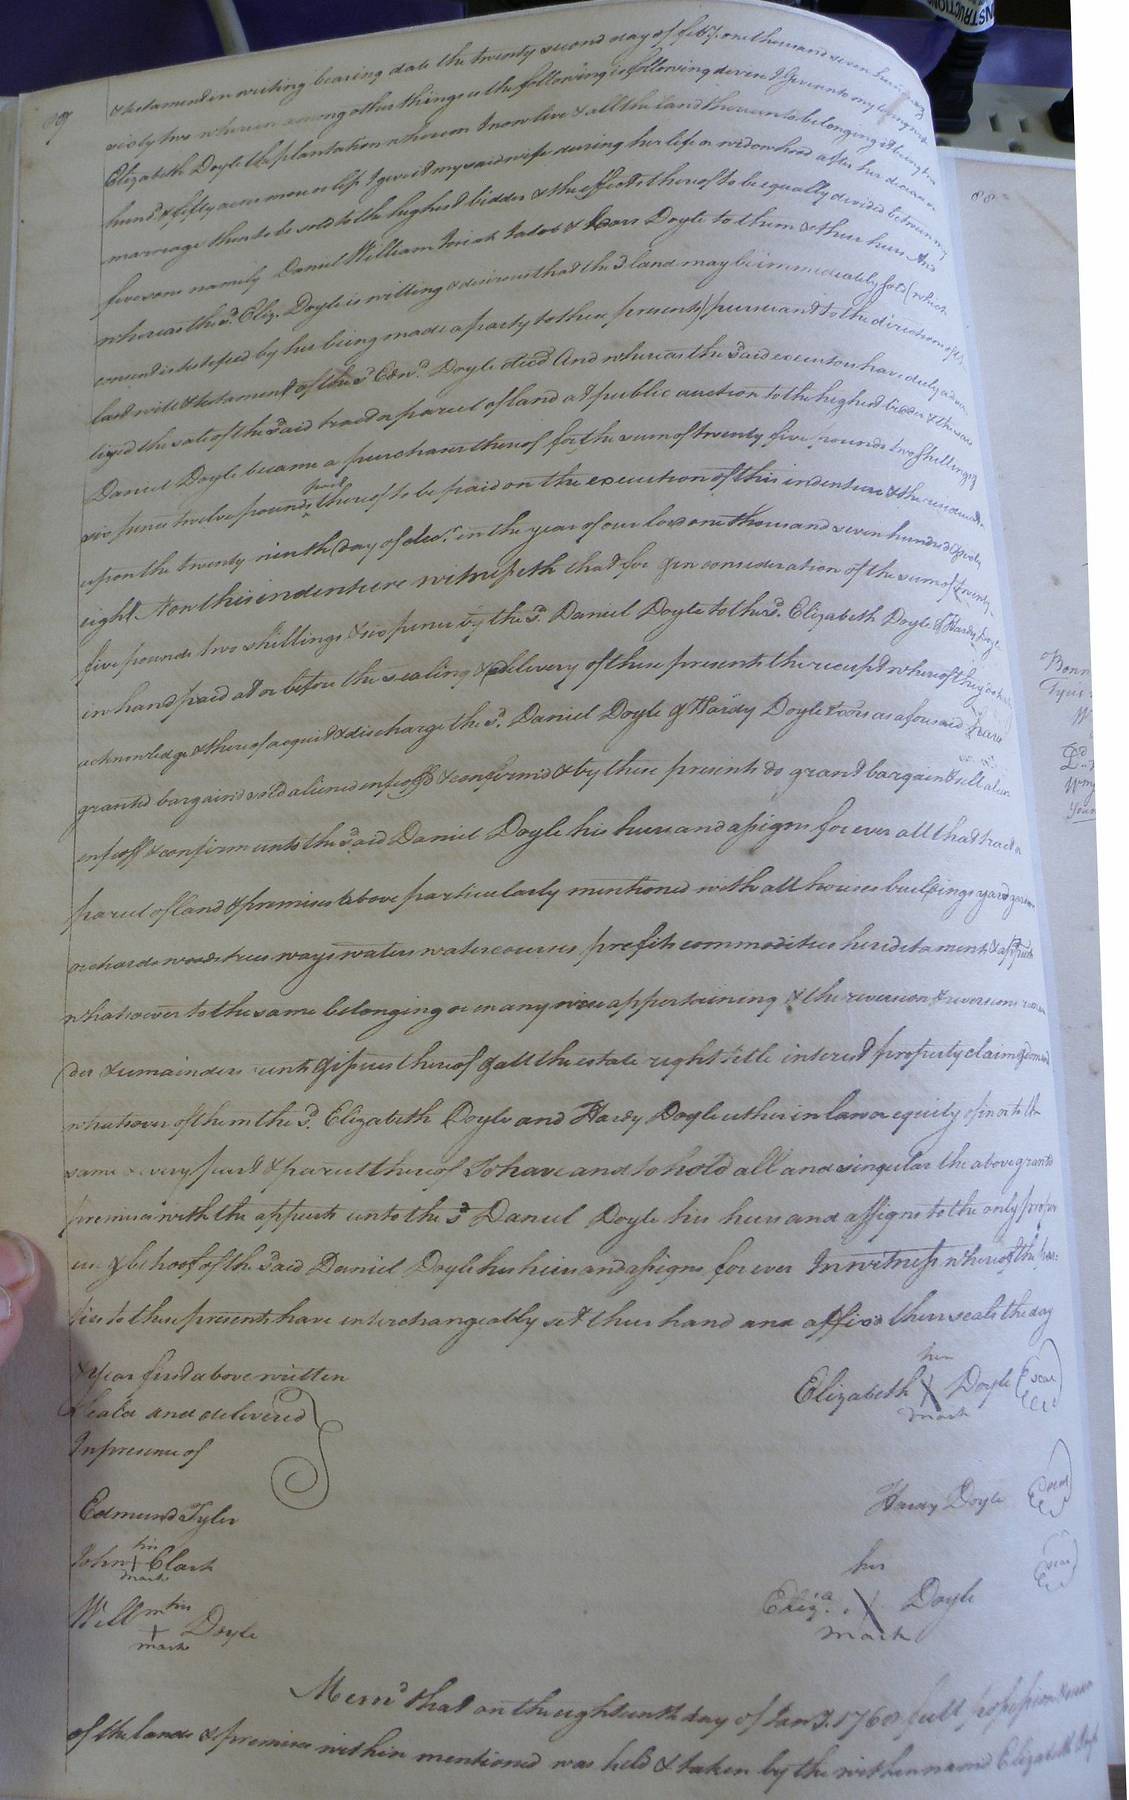 & testament in writing bearing date the twenty second day of feby. one thousand seven hundred
sixty two wherein among other things is the following is following devise I give unto my loving wife
Elizabeth Doyle the plantation whereon I now live & all the land thereunto belonging it being two
hund. & fifty acres more or less I give it my said wife during her life or widowhood after her decease or
marriage then to be sold to the highest bidder & the effects thereof to be equally divided between my
five sons namely Daniel William & Doyle to them & their heirs And
whereas the sd. Eliz. Doyle is willing & desirous that the sd land may be immediately sold (which
consent is testifed by her being made a party to these presents) pursuant to the direction of the
last will & testament of the sd Edwd. Doyle decd And whereas the said executors have duly adver
tized the sale of the said tract or parcel of land at public auction to the highest bidder & the said
Daniel Doyle became a purchaser thereof for the sum of twenty five pounds two shillings &
six pence twelve pounds paid thereof to be paid on the execution of this indenture & the residue
upon the twenty ninth day of decr. in the year of our lord one thousand seven hundred & sixty
eight Now this indenture witnesseth that for & in consideration of the sum of twenty
five pounds two shillings & six pence by the sd. Daniel Doyle to the sd. Elizabeth Doyle & Hardy Doyle
in hand paid at or before the sealing & delivery of these presents the receipt whereof they do
acknowledge & thereof acquit & discharge the sd. Daniel Doyle & Hardy Doyle Exors as aforesaid have
granted bargaind sold aliened enfeoff'd & confirmd & by these presents do grant bargain & sell alien
enfeoff & confirm unto the said Daniel Doyle his heirs and assigns for ever all that tract or
parcel of land & premises above particularly mentioned with all houses buildings yards gardens
orchards woods trees ways waters watercourses profits commodities hereditaments & appurts
whatsoever to the same belonging or in any wise appertaining & the reversion & reversions remain
der & remainders rents & issues thereof & all the estate right title interest property claim & demand
whatsoever of them the sd. Elizabeth Doyle and Hardy Doyle either in law or equity of in or to the
same & every part & parcel thereof To have and to hold all and singular the above granted
premises with the appurts unto the sd Daniel Doyle his heirs and assigns to the only proper
use & behoof of the said Daniel Doyle his heirs and assigns for ever In witness whereof the par-
ties to these presents have interchangeably set their hand and affixd their seals the day
& year first above written
Seald and delivered
In presence of
Edmund Tyler
John his mark Clark
Willm his mark Doyle
her
Elizabeth X Doyle (seal)
mark
Hardy Doyle (seal)
her
Eliza. X Doyle (seal)
mark
Memd that on the eighteenth day of Jany. 1768 full possession & seisin
of the lands & premises within mentioned was held & taken by the within named Elizabeth Doyle
88
Bonn
Tyus